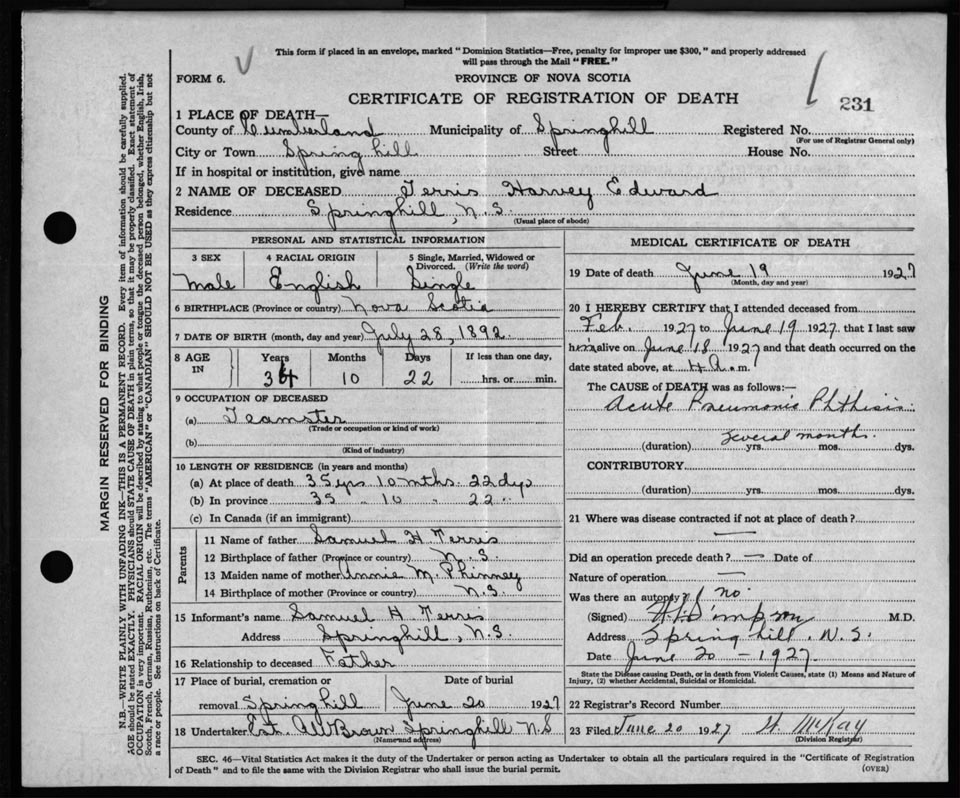 This form if placed in an envelope, marked "Dominion Statistics—Free, penalty for improper use $300," and properly addressed
will pass through the Mail "FREE."
FORM 6.
PROVINCE OF NOVA SCOTIA
CERTIFICATE OF REGISTRATION OF DEATH
231
1 PLACE OF DEATH—
County of Cumberland Municipality of Springhill Registered No.
(For use of Registrar General only)
City or Town Springhill Street House No.
If in hospital or institution, give name
2 NAME OF DECEASED Terris Harvey Edward
Residence Springhill, N.S.
(Usual place of abode)
PERSONAL AND STATISTICAL INFORMATION
3 SEX 4 RACIAL ORIGIN 5 Single, Married, Widowed or Divorced. (Write the word)
Male English Single
6 BIRTHPLACE (Province or country) Nova Scotia
7 DATE OF BIRTH (month, day and year) July 28, 1892.
8 AGE IN Years Months Days If less than one day,
34 10 22 hrs. or min.
9 OCCUPATION OF DECEASED
(a) Teamster
(Trade or occupation or kind of work)
(b)
(Kind of industry)
10 LENGTH OF RESIDENCE (in years and months)
(a) At place of death 35 yrs 10 mths. 22 dys
(b) In province 35 " 10 " 22 "
(c) In Canada (if an immigrant)
Parents
11 Name of father Samuel H Terris
12 Birthplace of father (Province or country) N.S.
13 Maiden name of mother Annie M. Phinney
14 Birthplace of mother (Province or country) N.S.
15 Informant's name Samuel H Terris
Address Springhill, N.S.
16 Relationship to deceased Father
17 Place of burial, cremation or Date of burial
removal Springhill June 20 1927
18 Undertaker Est. A W Brown Springhill N S
(Name and address)
MEDICAL CERTIFICATE OF DEATH
19 Date of death June 19 1927
(Month, day and year)
20 I HEREBY CERTIFY that I attended deceased from
Feb. 1927 to June 19 1927 that I last saw
him alive on June 18 1927 and that death occurred on the
date stated above, at 4 A. m.
The CAUSE of DEATH was as follows:—
Acute Pneumonic Phthisis
several months.
(duration) yrs. mos. dys.
CONTRIBUTORY
(duration) yrs. mos. dys.
21 Where was disease contracted if not at place of death?
—
Did an operation precede death? — Date of
Nature of operation —
Was there an autopsy? no.
(Signed) M.D.
Address Springhill. N.S.
Date June 20 - 1927.
State the Disease causing Death, or in death from Violent Causes, state (1) Means and Nature of
Injury, (2) whether Accidental, Suicidal or Homicidal.
22 Registrar's Record Number
23 Filed June 20 1927 H. McKay
(Division Registrar)
SEC. 46—Vital Statistics Act makes it the duty of the Undertaker or person acting as Undertaker to obtain all the particulars required in the "Certificate of Registration
of Death" and to file the same with the Division Registrar who shall issue the burial permit.
(OVER)
MARGIN RESERVED FOR BINDING
N.B.—WRITE PLAINLY WITH UNFADING INK—THIS IS A PERMANENT RECORD. Every item of information should be carefully supplied.
AGE should be stated EXACTLY. PHYSICIANS should STATE CAUSE OF DEATH in plain terms, so that it may be properly classified. Exact statement of
OCCUPATION is very important. RACIAL ORIGIN will be described by stating to what people or tongue the deceased person belonged, whether English, Irish,
Scotch, French, German, Russian, Ruthenian, etc. The terms "AMERICAN" or "CANADIAN" SHOULD NOT BE USED as they express citizenship but not
a race or people. See instructions on back of Certificate.